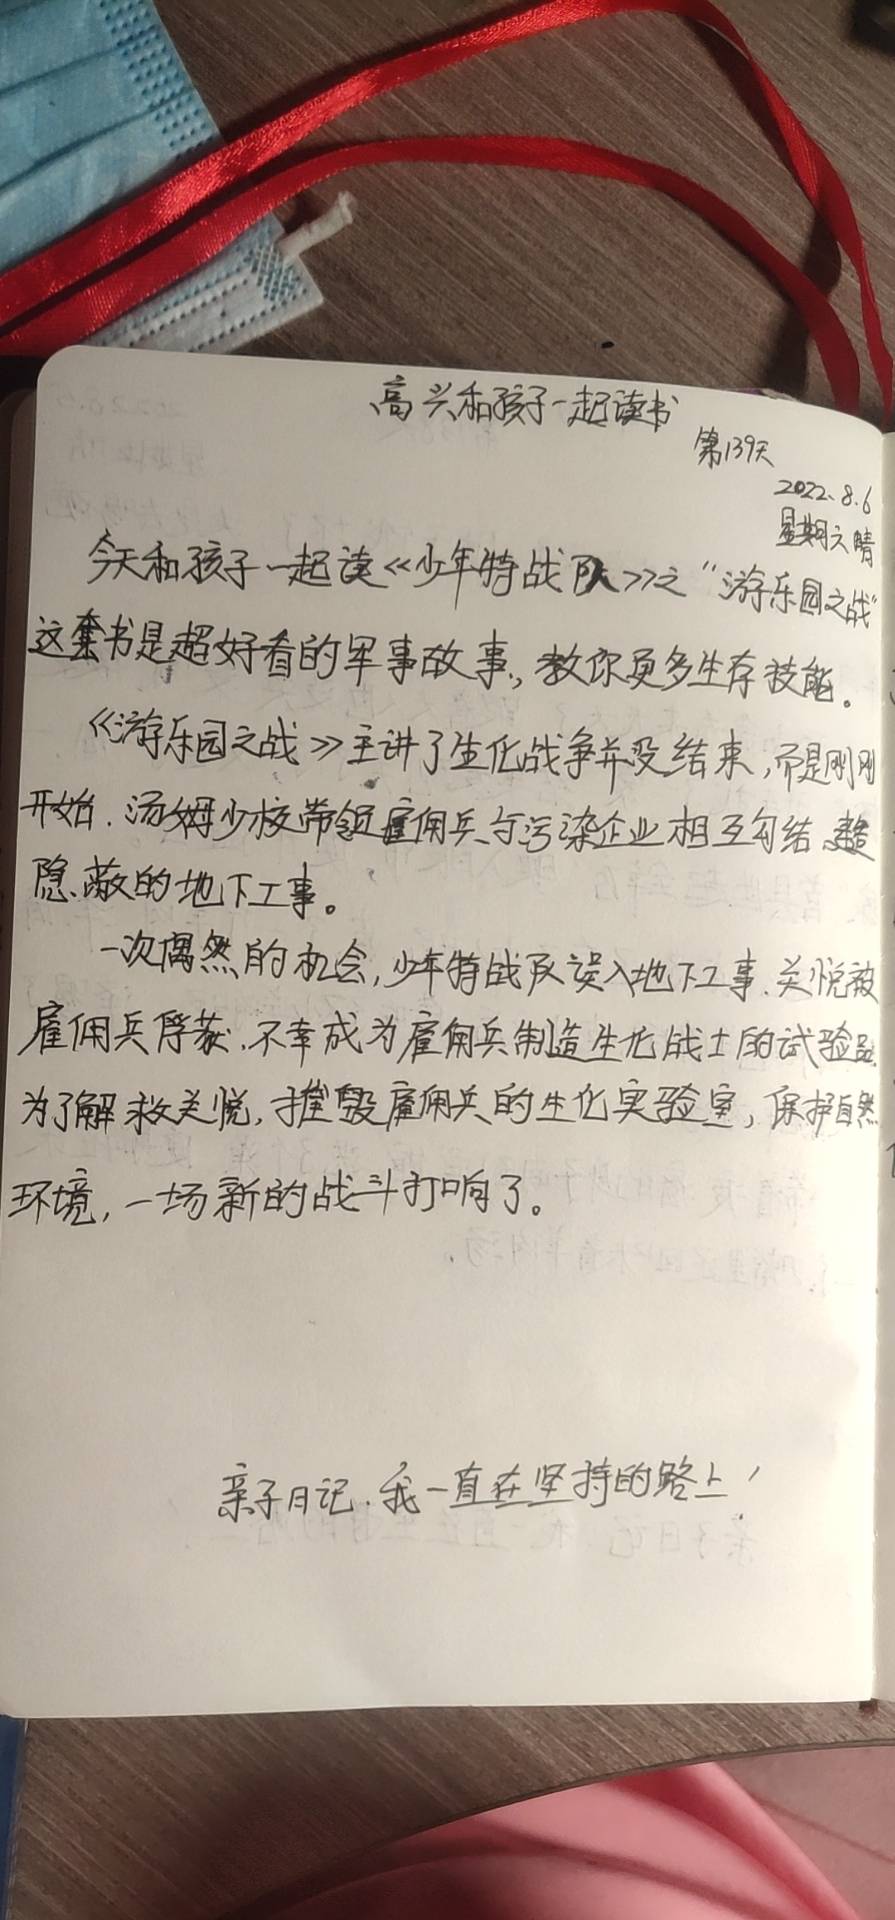 高兴和孩子一起读书
第139天
2022.8.6
星期六 晴
今天和孩子一起读《少年特战队》之“游乐园之战”
这套书是超好看的军事故事，教你更多生存技能。
《游乐园之战》主讲了生化战争并没结束，而是刚刚
开始.汤姆少校带领雇佣兵与污染企业相互勾结,建造
隐蔽的地下工事。
一次偶然的机会，少年特战队误入地下工事.关悦被
雇佣兵俘获.不幸成为雇佣兵制造生化战士的试验品.
为了解救关悦，摧毁雇佣兵的生化实验室，保护自然
环境，一场新的战斗打响了。
亲子日记.我一直在坚持的路上！